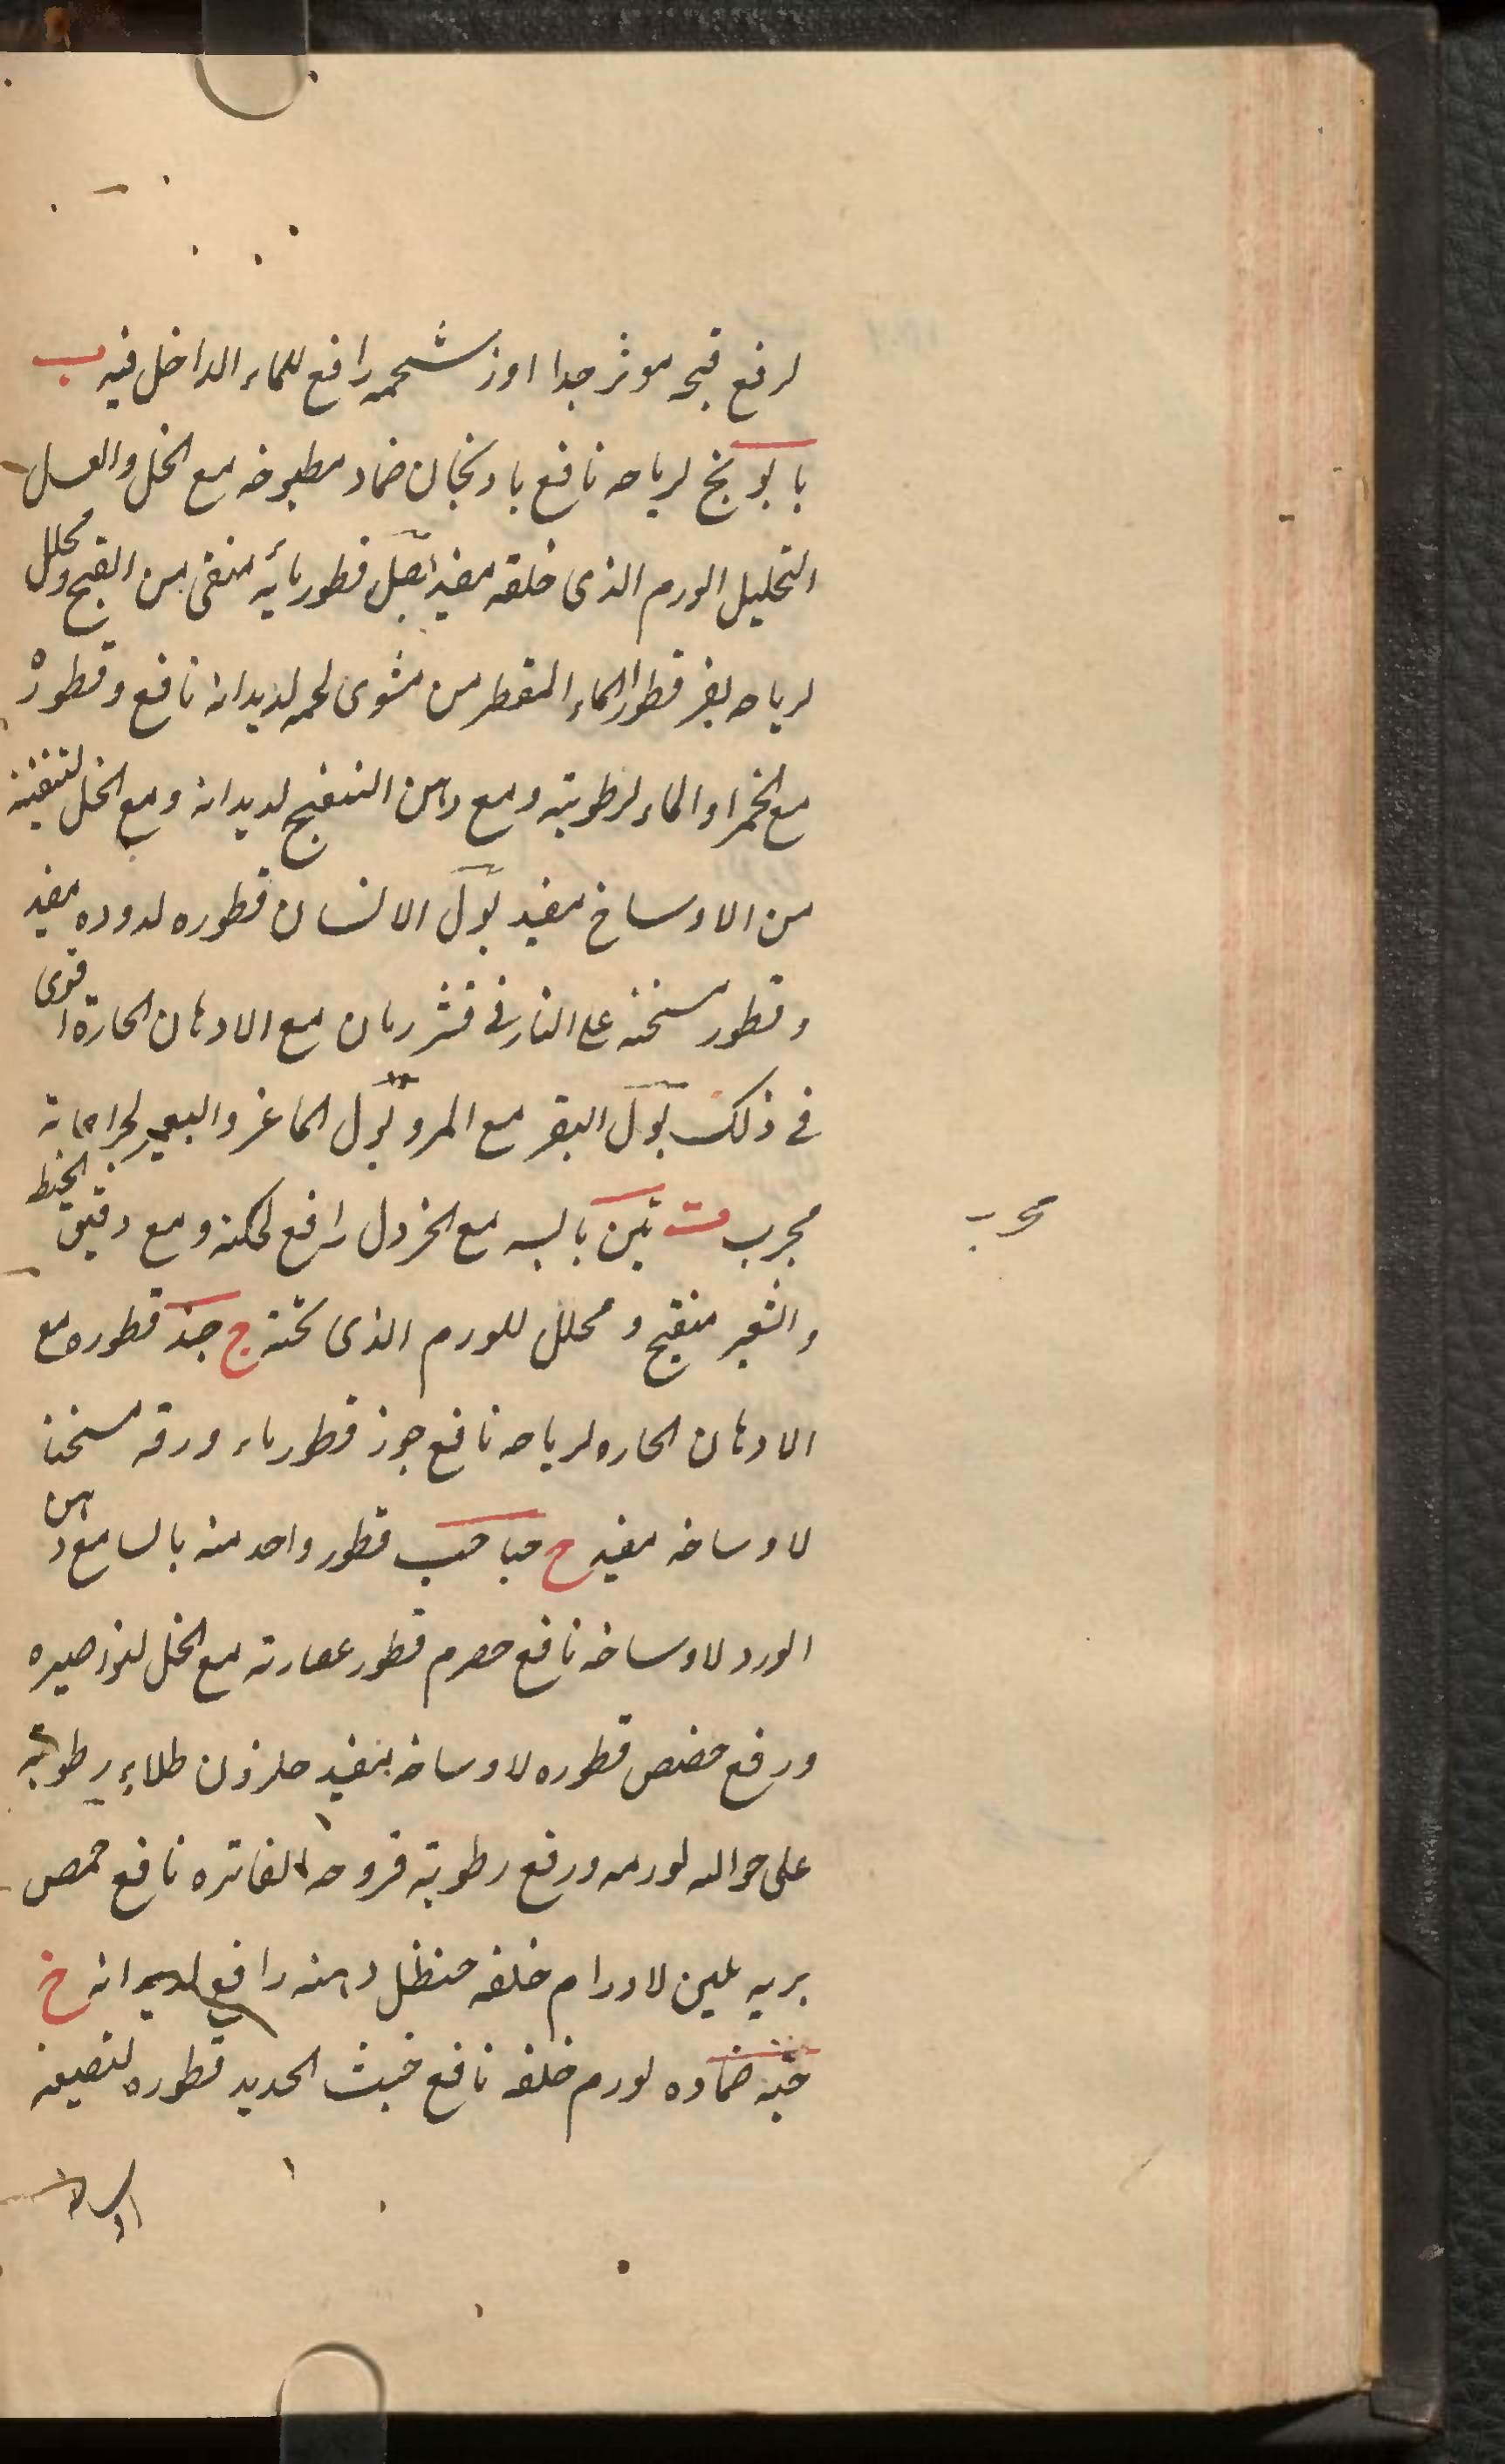 لرفع قيحه موثر جدا اوز شحمه رافع للماء الداخل فيه ب
بابونج لرياحه نافع بادنجان ضماد مطبوخه مع الخل والعسل
لتحليل الورم الذى خلفه مفيد بصل قطور مائه منقى من القيح ومحلل
لرياحه بقر قطور الماء المقطر من مشوى لحمه لديدانه نافع وقطور
مع الخمر او الماء لرطوبته ومع دهن البنفسج لديدانه ومع الخل لتنقيته
من الاوساخ مفيد بول الانسان قطوره لدوده مفيد
وقطور مسخنه على النار فى قشر رمان مع الادهان الحارة اقوى
فى ذلك بول البقر مع المر وبول الماعز والبعير لجراحاته
مجرب ت تين يابسه مع الخردل رافع لحكته ومع دقيق الحنطة
والشعير منضج ومحلل للورم الذى تحته ج جند قطوره مع
الادهان الحاره لرياحه نافع جوز قطور ماء ورقه مسخنا
لاوساخه مفيد ح حباحب قطور واحد منه يابسا مع دهن
الورد لاوساخه نافع حصرم قطور عصارته مع الخل
ورفع حضض قطوره لاوساخه مفيد حلزون طلاء رطوبته
على حواليه لورمه ورفع رطوبة قروحه الفاتره نافع حمص
بريه ملين لاورام خلفه حنظل دهنه رافع لديدانه خ
خبه ضماده لورم خلفه نافع خبث الحديد قطوره
مجرب